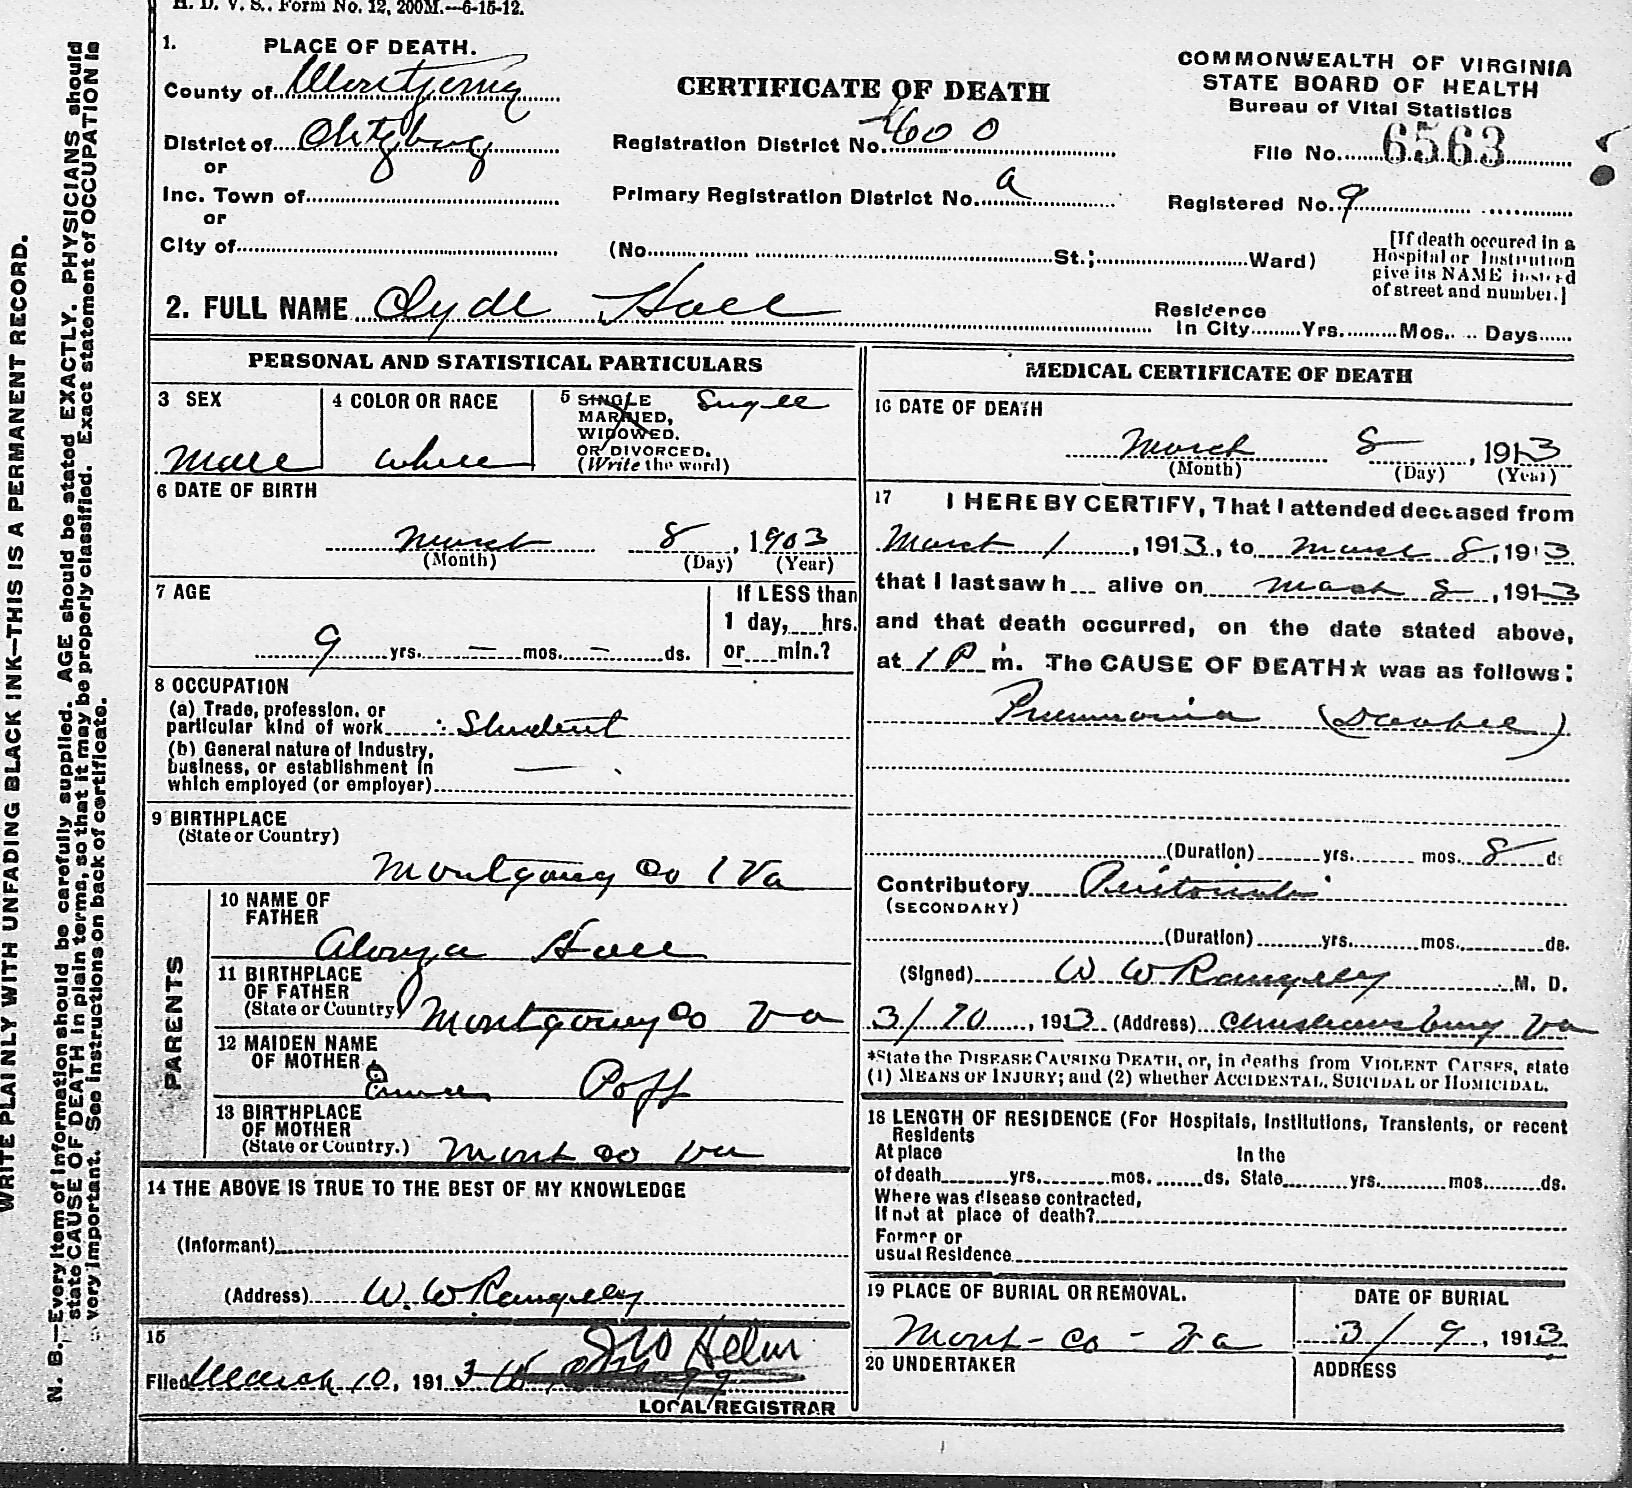 H. D. V. S.. Form No. 12, 200M.—6-15-12.
1. PLACE OF DEATH.
County of Montgomery
District of Chtgburg
or
Inc. Town of
or
City of
CERTIFICATE OF DEATH
Registration District No. 1600
Primary Registration District No. a
(No. St.; Ward)
COMMONWEALTH OF VIRGINIA
STATE BOARD OF HEALTH
Bureau of Vital Statistics
File No. 6563
Registered No. 9
[If death occured in a
Hospital or Institution
give its NAME instead
of street and number.]
2. FULL NAME Clyde Hall
Residence
In City Yrs. Mos. Days
PERSONAL AND STATISTICAL PARTICULARS
3 SEX
Male
4 COLOR OR RACE
white
5 SINGLE
MARRIED,
WIDOWED.
OR DIVORCED.
(Write the word)
Single
6 DATE OF BIRTH
March 8, 1903
(Month) (Day) (Year)
7 AGE
9 yrs. — mos. — ds.
If LESS than
1 day, hrs.
or min.?
8 OCCUPATION
(a) Trade, profession, or
particular kind of work Student
(b) General nature of Industry,
business, or establishment in
which employed (or employer) —
9 BIRTHPLACE
(State or Country)
Montgomery Co Va
PARENTS
10 NAME OF
FATHER
Alonza Hall
11 BIRTHPLACE
OF FATHER
(State or Country)
Montgomery Co Va
12 MAIDEN NAME
OF MOTHER
Poff
13 BIRTHPLACE
OF MOTHER
(State or Country.)
Mont Co Va
14 THE ABOVE IS TRUE TO THE BEST OF MY KNOWLEDGE
(Informant)
(Address) W. W Rangeley
15
Filed March 10, 1913 Jno Helm
LOCAL REGISTRAR
MEDICAL CERTIFICATE OF DEATH
16 DATE OF DEATH
March 8, 1913
(Month) (Day) (Year)
17 I HEREBY CERTIFY, That I attended deceased from
March 1, 1913, to March 8, 1913
that I last saw h alive on March 8, 1913
and that death occurred, on the date stated above,
at 1 P m. The CAUSE OF DEATH★ was as follows:
Pneumonia (Double)
(Duration) yrs. mos. 8 ds
Contributory Peritonitis
(SECONDARY)
(Duration) yrs. mos. ds.
(Signed) W W Rangeley M. D.
3/10, 1913 (Address) Christiansburg Va
*State the DISEASE CAUSING DEATH, or, in deaths from VIOLENT CAUSES, state
(1) MEANS OF INJURY; and (2) whether ACCIDENTAL, SUICIDAL or HOMICIDAL.
18 LENGTH OF RESIDENCE (For Hospitals, Institutions, Transients, or recent
Residents
At place In the
of death yrs. mos. ds. State yrs. mos. ds.
Where was disease contracted,
If not at place of death?
Former or
usual Residence
19 PLACE OF BURIAL OR REMOVAL.
Mont - Co - Va
DATE OF BURIAL
3/9, 1913
20 UNDERTAKER
ADDRESS
WRITE PLAINLY WITH UNFADING BLACK INK—THIS IS A PERMANENT RECORD.
N. B.—Every item of information should be carefully supplied. AGE should be stated EXACTLY. PHYSICIANS should
state CAUSE OF DEATH in plain terms, so that it may be properly classified. Exact statement of OCCUPATION is
very important. See instructions on back of certificate.